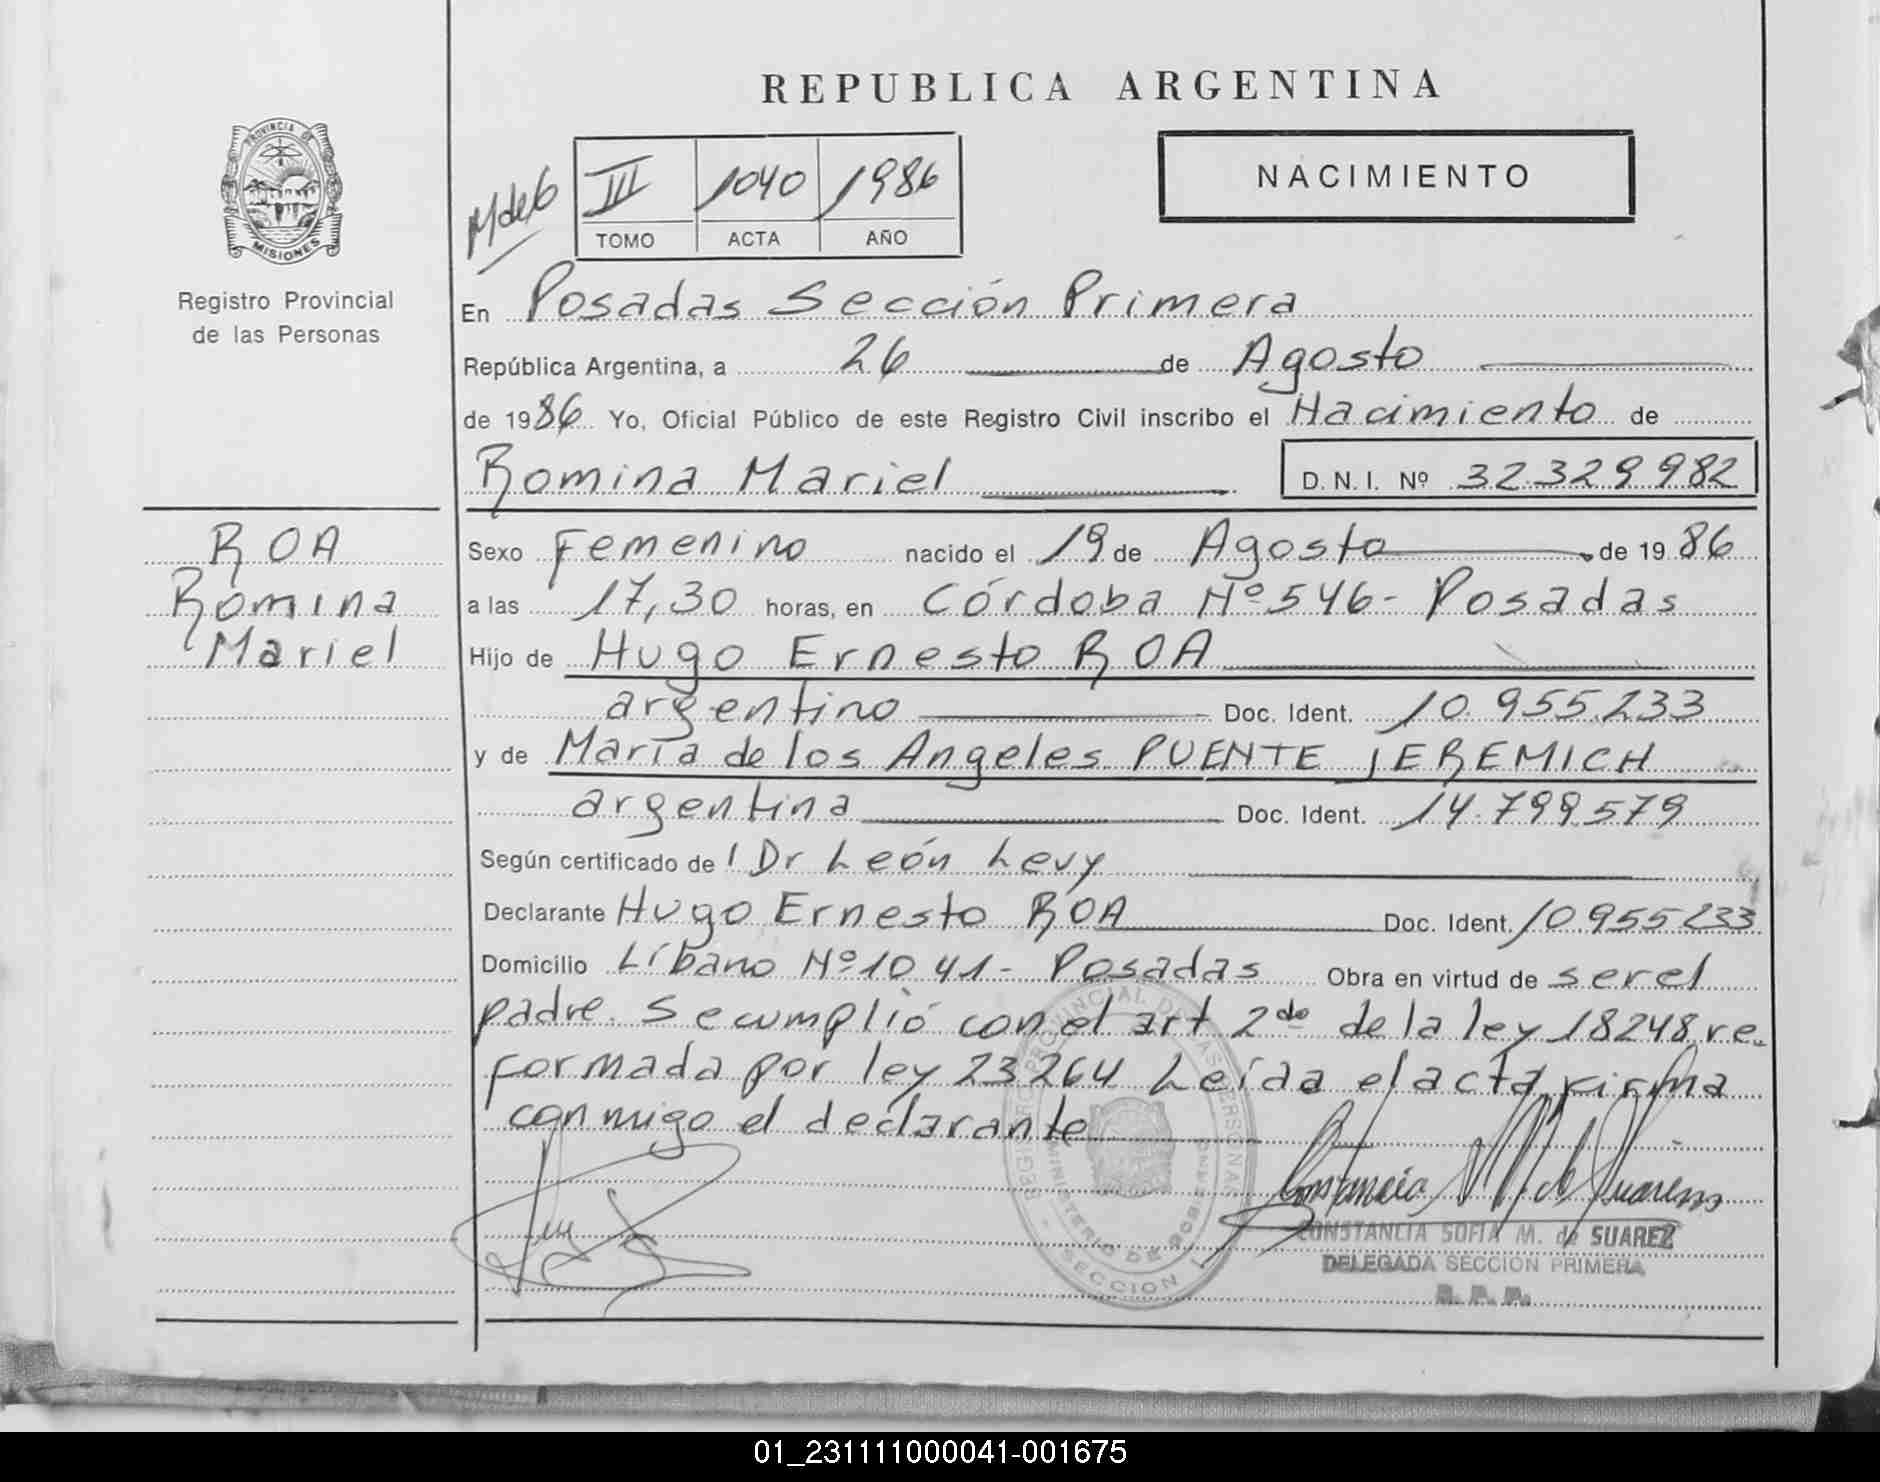 REPUBLICA ARGENTINA
PROVINCIA DE
MISIONES
Registro Provincial
de las Personas
III 1040 1986
TOMO ACTA AÑO
NACIMIENTO
En Posadas Sección Primera
República Argentina, a 26 de Agosto
de 1986 Yo, Oficial Público de este Registro Civil inscribo el Nacimiento de
Romina Mariel D.N.I. Nº 32.329.982
ROA
Romina
Mariel
Sexo Femenino nacido el 19 de Agosto de 1986
a las 17,30 horas, en Córdoba Nº 546- Posadas
Hijo de Hugo Ernesto ROA
argentino Doc. Ident. 10.955.233
y de María de los Angeles PUENTE JEREMICH
argentina Doc. Ident. 14.799.579
Según certificado de l Dr León Levy
Declarante Hugo Ernesto ROA Doc. Ident. 10.955.233
Domicilio Líbano Nº 1041- Posadas Obra en virtud de ser el
padre. Se cumplió con el art 2do de la ley 18248 re_
formada por ley 23264 Leída el acta firma
conmigo el declarante
REGISTRO PROVINCIAL DE LAS PERSONAS
MINISTERIO DE GOBIERNO
SECCION 1
CONSTANCIA SOFIA M. de SUAREZ
DELEGADA SECCION PRIMERA
R. P. P.
01_231111000041-001675